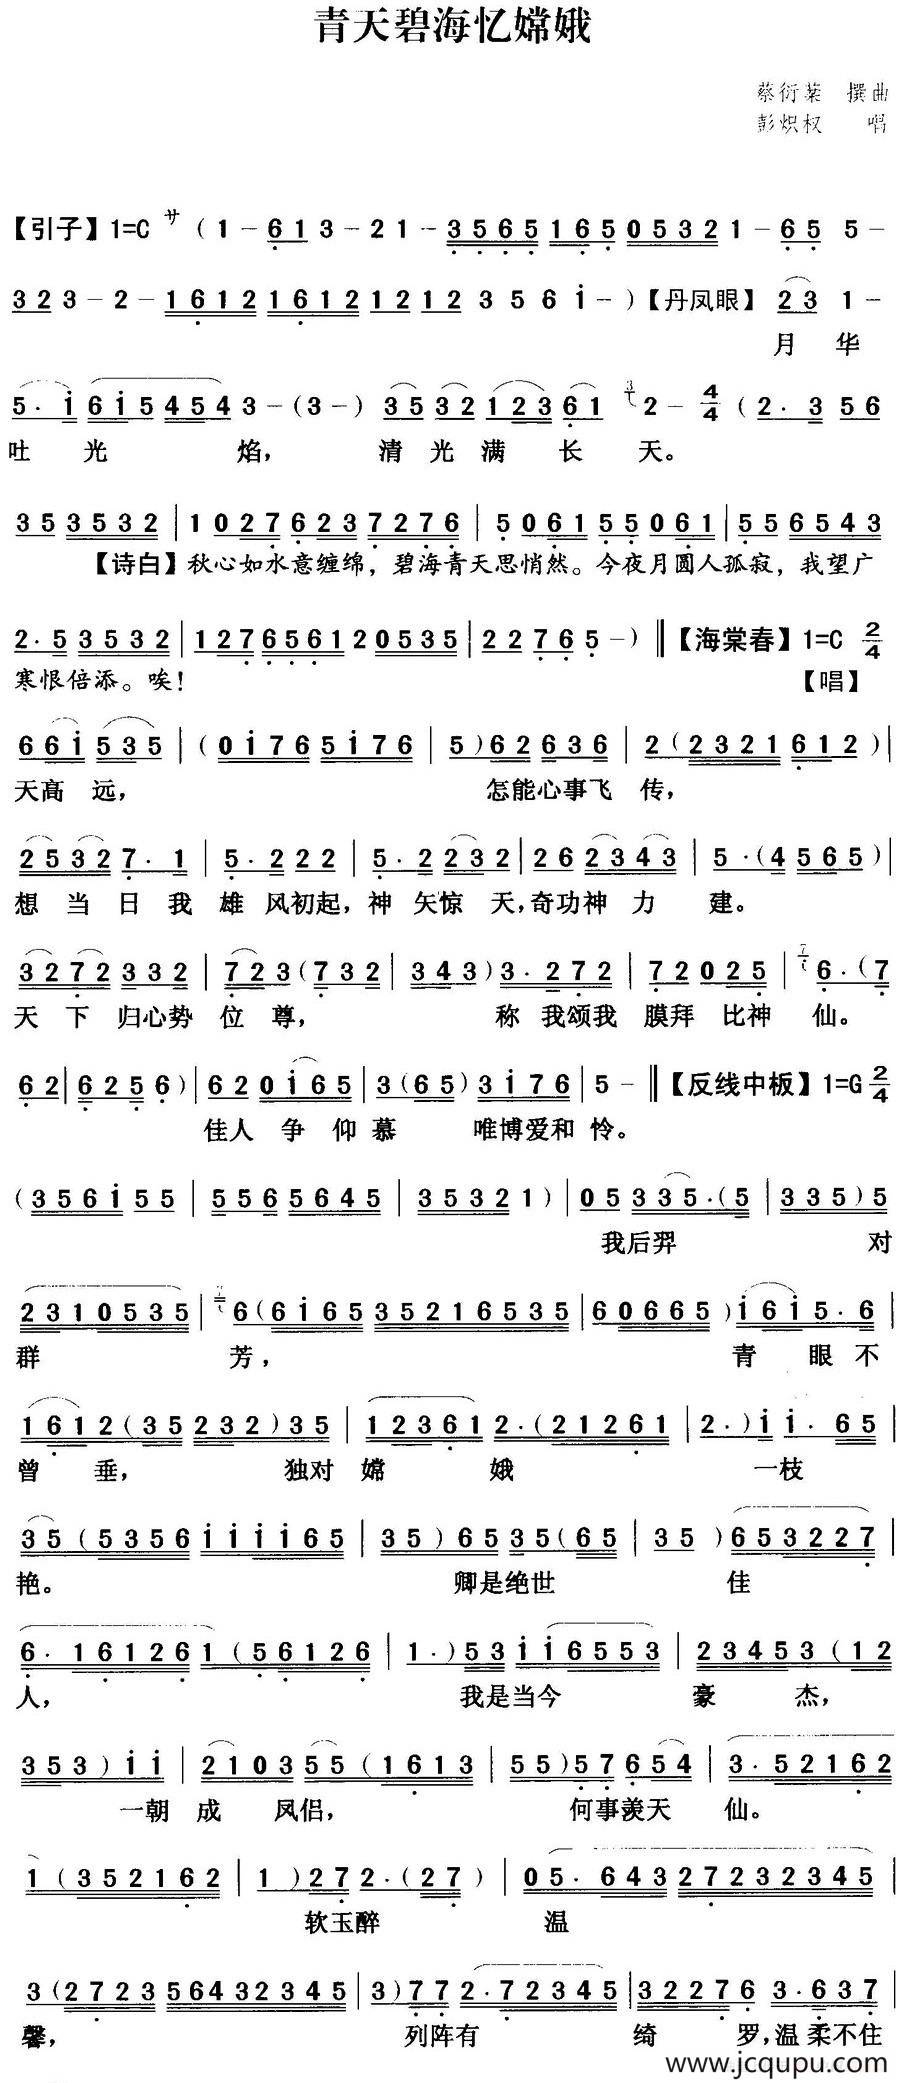 青天碧海忆嫦娥
蔡衍棻 撰曲
彭炽权 唱
【引子】1=C サ (1 – 6 1 3 – 2 1 – 3 5 6 5 1 6 5 0 5 3 2 1 – 6 5 5 –
3 2 3 – 2 – 1 6 1 2 1 6 1 2 1 2 1 2 3 5 6 i – ) 【丹凤眼】 2 3 1 –
月 华
5 · i 6 i 5 4 5 4 3 – (3 –) 3 5 3 2 1 2 3 6 1 2 – 4/4 (2 · 3 5 6
吐 光 焰, 清 光 满 长 天。
3 5 3 5 3 2 | 1 0 2 7 6 2 3 7 2 7 6 | 5 0 6 1 5 5 0 6 1 | 5 5 6 5 4 3
【诗白】秋心如水意缠绵，碧海青天思悄然。今夜月圆人孤寂，我望广
2 · 5 3 5 3 2 | 1 2 7 6 5 6 1 2 0 5 3 5 | 2 2 7 6 5 – ) ‖ 【海棠春】1=C 2/4
寒恨倍添。唉！ 【唱】
6 6 i 5 3 5 | (0 i 7 6 5 i 7 6 | 5 ) 6 2 6 3 6 | 2 ( 2 3 2 1 6 1 2 ) |
天高 远, 怎能心事飞 传,
2 5 3 2 7 · 1 | 5 · 2 2 2 | 5 · 2 2 3 2 | 2 6 2 3 4 3 | 5 · ( 4 5 6 5 ) |
想 当 日 我 雄 风初起, 神 矢惊 天, 奇功神 力 建。
3 2 7 2 3 3 2 | 7 2 3 ( 7 3 2 | 3 4 3 ) 3 · 2 7 2 | 7 2 0 2 5 | 6 · ( 7
天 下 归心势 位 尊, 称 我颂我 膜拜 比神 仙。
6 2 | 6 2 5 6 ) | 6 2 0 i 6 5 | 3 ( 6 5 ) 3 i 7 6 | 5 – ‖ 【反线中板】1=G 2/4
佳人 争 仰 慕 唯博爱和 怜。
( 3 5 6 i 5 5 | 5 5 6 5 6 4 5 | 3 5 3 2 1 ) | 0 5 3 3 5 · ( 5 | 3 3 5 ) 5
我后羿 对
2 3 1 0 5 3 5 | 6 ( 6 i 6 5 3 5 2 1 6 5 3 5 | 6 0 6 6 5 ) i 6 i 5 · 6 |
群 芳, 青 眼 不
1 6 1 2 ( 3 5 2 3 2 ) 3 5 | 1 2 3 6 1 2 · ( 2 1 2 6 1 | 2 · ) i i · 6 5 |
曾 垂, 独对 嫦 娥 一枝
3 5 ( 5 3 5 6 i i i i 6 5 | 3 5 ) 6 5 3 5 ( 6 5 | 3 5 ) 6 5 3 2 2 7 |
艳。 卿是绝世 佳
6 · 1 6 1 2 6 1 ( 5 6 1 2 6 | 1 · ) 5 3 i i 6 5 5 3 | 2 3 4 5 3 ( 1 2
人, 我是当今 豪 杰,
3 5 3 ) i i | 2 1 0 3 5 5 ( 1 6 1 3 | 5 5 ) 5 7 6 5 4 | 3 · 5 2 1 6 2
一朝 成 凤侣, 何事羡天 仙。
1 ( 3 5 2 1 6 2 | 1 ) 2 7 2 · ( 2 7 ) | 0 5 · 6 4 3 2 7 2 3 2 3 4 5 |
软玉醉 温
3 ( 2 7 2 3 5 6 4 3 2 3 4 5 | 3 ) 7 7 2 · 7 2 3 4 5 | 3 2 2 7 6 3 · 6 3 7 |
馨, 列阵有 绮 罗, 温 柔不住
www.jcqupu.com